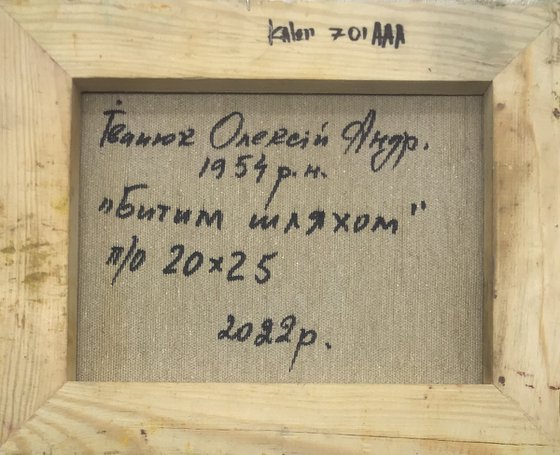 701AAA
Іванюк Олексій Андр.
1954 р.н.
„Битим шляхом"
п/о 20×25
2022р.